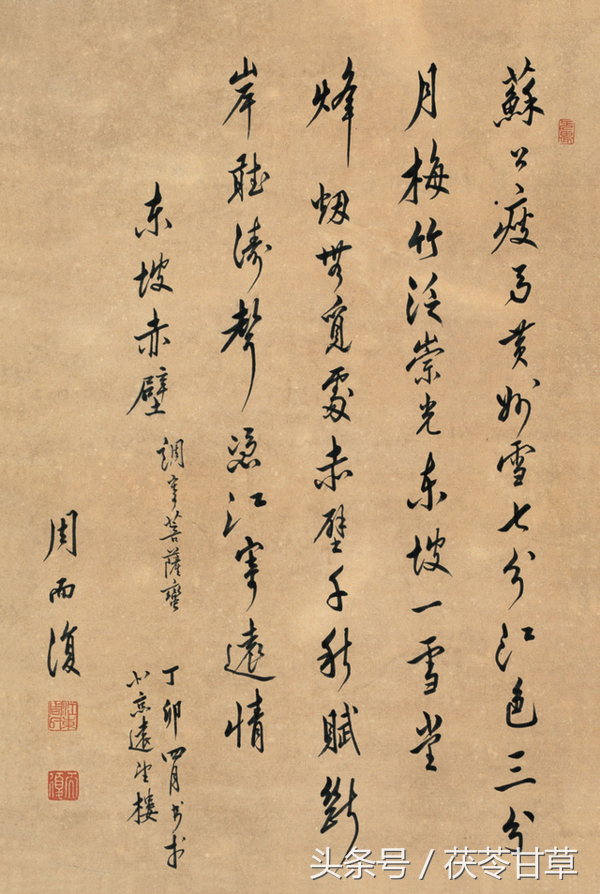 蘇公瘦馬黄州雪七分江色三分
月梅竹泛崇光东坡一雪堂
烽烟無覓處赤壁千秋賦斷
岸聽濤聲憑江寄遠情
东坡赤壁
調寄菩薩蠻
丁卯四月书於
北京遠望樓
周而復
头条号 / 茯苓甘草